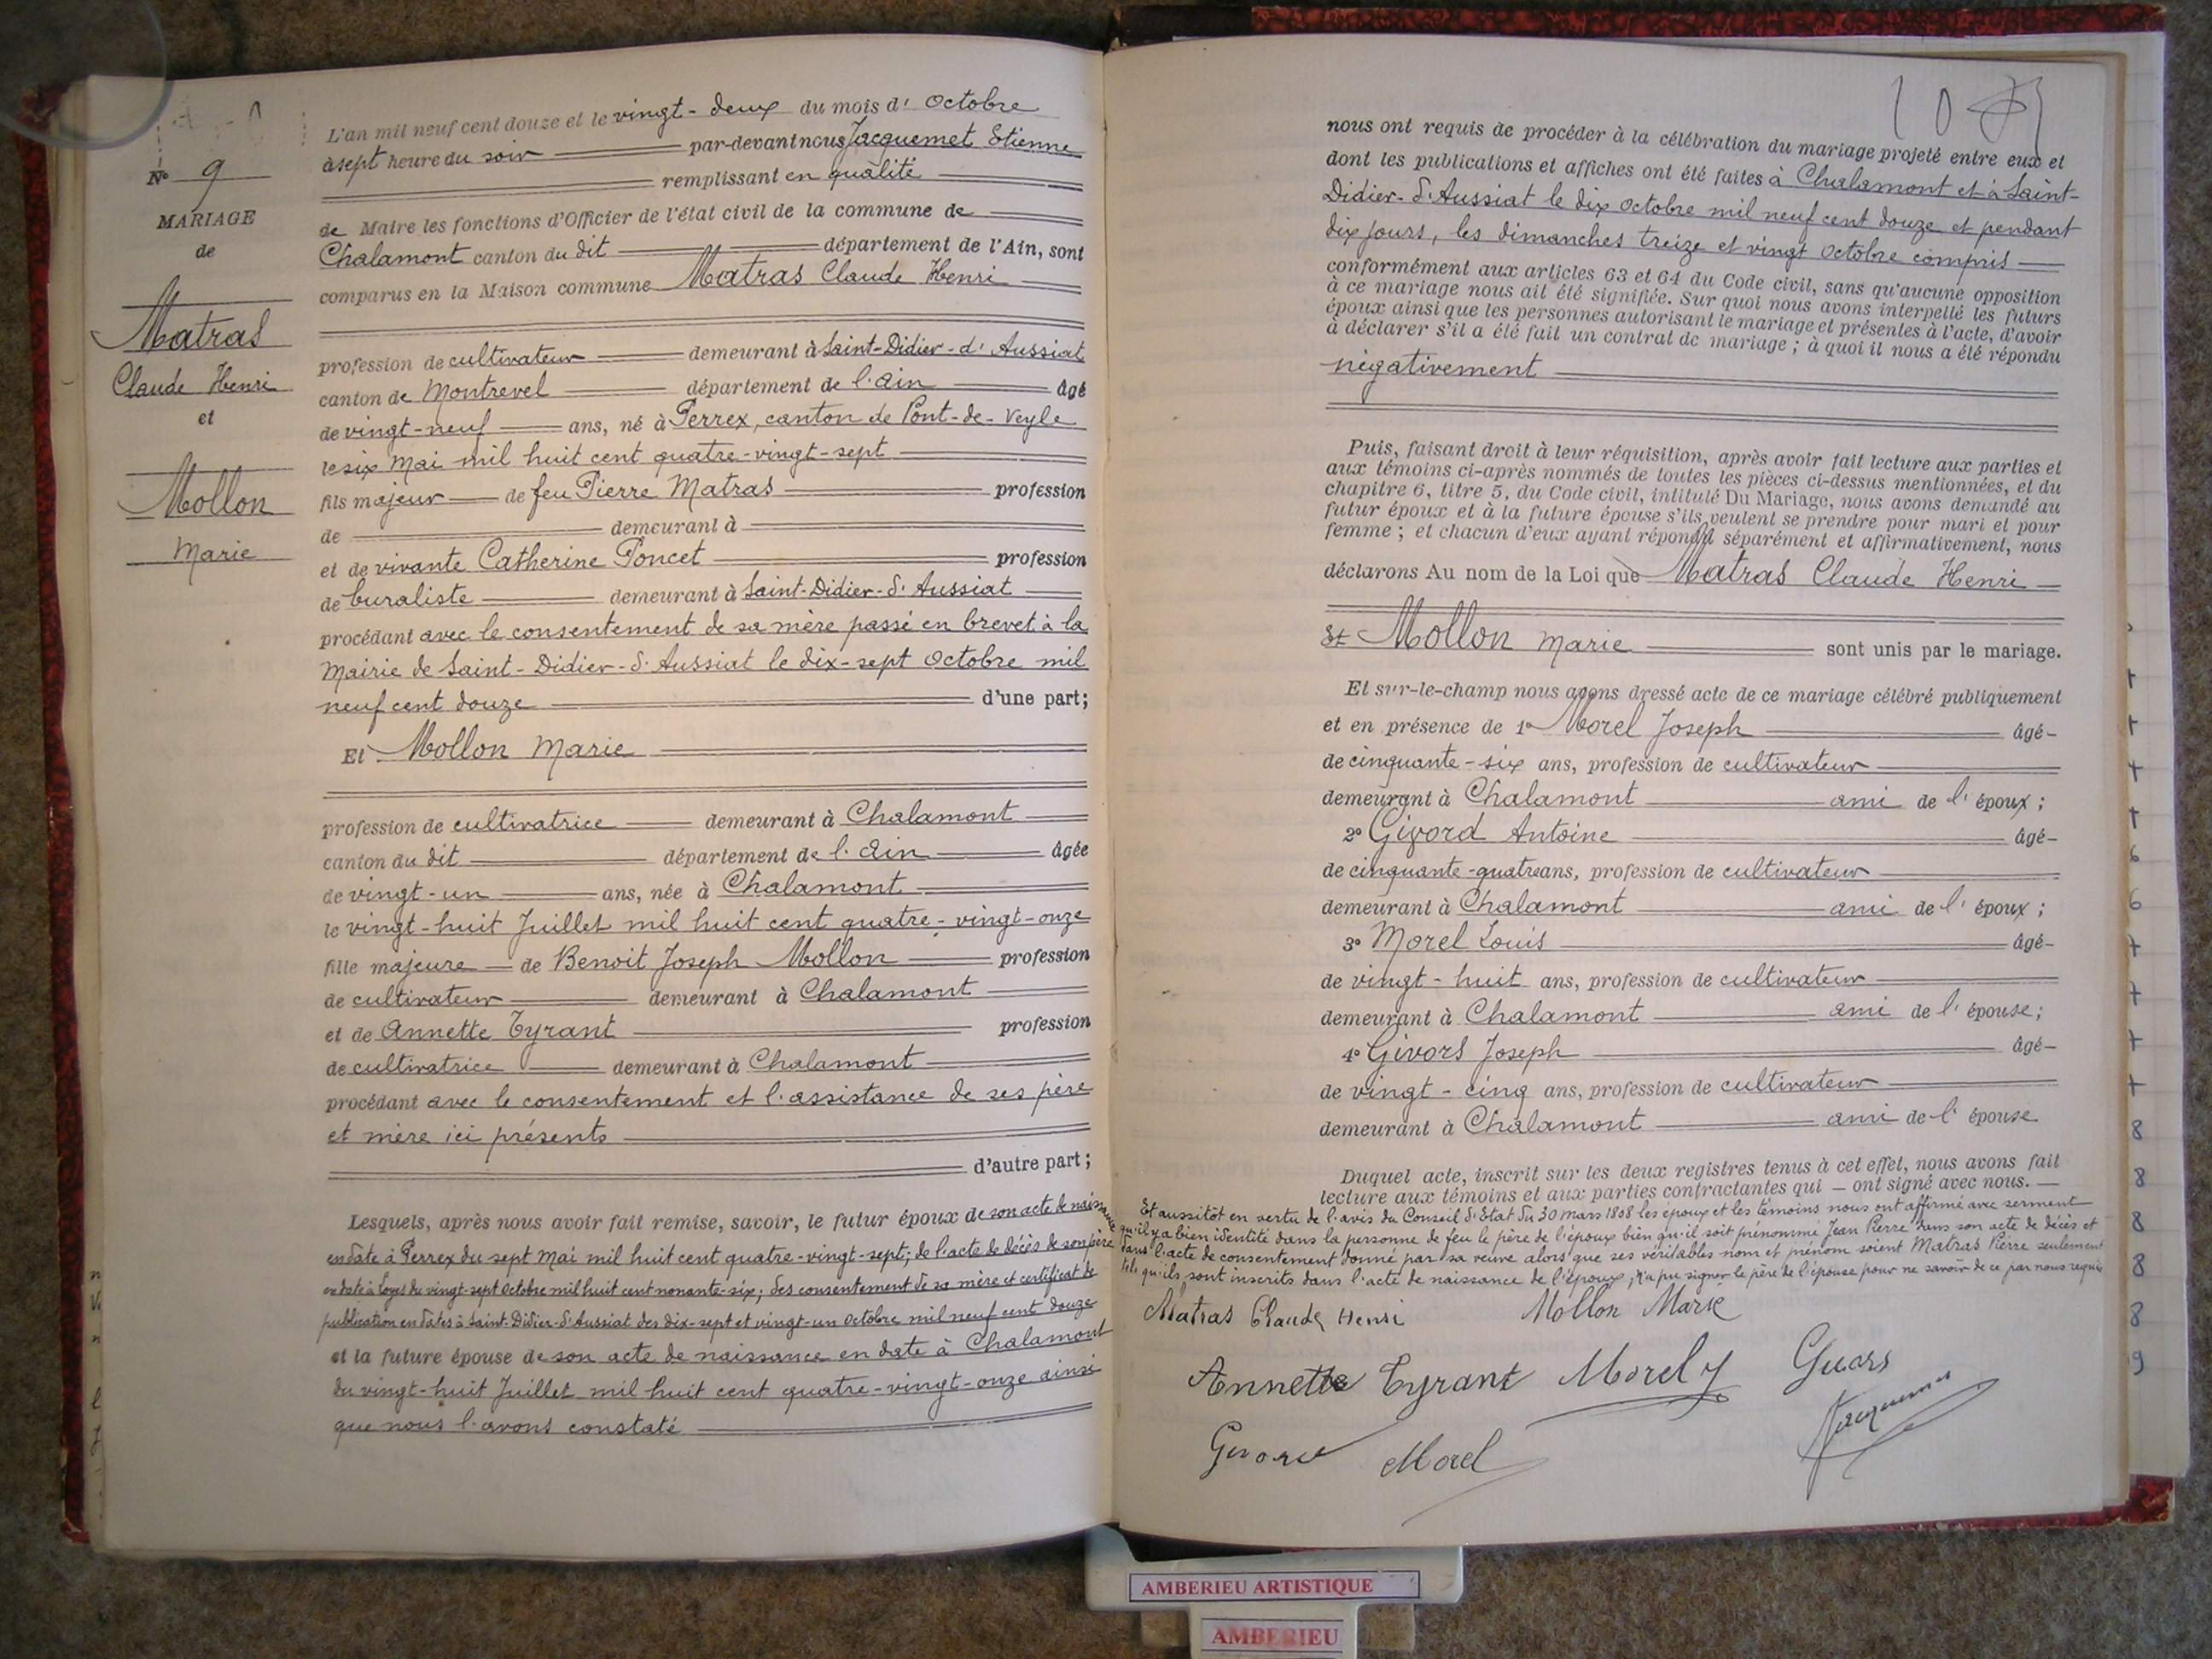 N° 9
MARIAGE
de
Matras
Claude Henri
et
Mollon
Marie
L'an mil neuf cent douze et le vingt-deux du mois d' Octobre
à sept heure du soir par-devant nous Jacquemet Etienne
remplissant en qualité
de Maire les fonctions d'Officier de l'état civil de la commune de
Chalamont canton du dit département de l'Ain, sont
comparus en la Maison commune Matras Claude Henri
profession de cultivateur demeurant à Saint-Didier-d'Aussiat
canton de Montrevel département de l'Ain âgé
de vingt-neuf ans, né à Perrex, canton de Pont-de-Veyle
le six Mai mil huit cent quatre-vingt-sept
fils majeur de feu Pierre Matras profession
de demeurant à
et de vivante Catherine Poncet profession
de buraliste demeurant à Saint-Didier-d'Aussiat
procédant avec le consentement de sa mère passé en brevet à la
Mairie de Saint-Didier-d'Aussiat le dix-sept Octobre mil
neuf cent douze d'une part;
Et Mollon Marie
profession de cultivatrice demeurant à Chalamont
canton du dit département de l'Ain âgée
de vingt-un ans, née à Chalamont
le vingt-huit Juillet mil huit cent quatre-vingt-onze
fille majeure de Benoit Joseph Mollon profession
de cultivateur demeurant à Chalamont
et de Annette Tyrant profession
de cultivatrice demeurant à Chalamont
procédant avec le consentement et l'assistance de ses père
et mère ici présents
d'autre part;
Lesquels, après nous avoir fait remise, savoir, le futur époux de son acte de naissance
en date à Perrex du sept Mai mil huit cent quatre-vingt-sept; de l'acte de décès de son père
en date à Loyes du vingt-sept Octobre mil huit cent nonante-six; des consentement de sa mère et certificat de
publication en dates à Saint-Didier-d'Aussiat des dix-sept et vingt-un Octobre mil neuf cent douze
et la future épouse de son acte de naissance en date à Chalamont
du vingt-huit Juillet mil huit cent quatre-vingt-onze ainsi
que nous l'avons constaté
nous ont requis de procéder à la célébration du mariage projeté entre eux et
dont les publications et affiches ont été faites à Chalamont et à Saint-
Didier-d'Aussiat le dix octobre mil neuf cent douze et pendant
dix jours, les dimanches treize et vingt Octobre compris
conformément aux articles 63 et 64 du Code civil, sans qu'aucune opposition
à ce mariage nous ait été signifiée. Sur quoi nous avons interpellé les futurs
époux ainsi que les personnes autorisant le mariage et présentes à l'acte, d'avoir
à déclarer s'il a été fait un contrat de mariage; à quoi il nous a été répondu
négativement
Puis, faisant droit à leur réquisition, après avoir fait lecture aux parties et
aux témoins ci-après nommés de toutes les pièces ci-dessus mentionnées, et du
chapitre 6, titre 5, du Code civil, intitulé Du Mariage, nous avons demandé au
futur époux et à la future épouse s'ils veulent se prendre pour mari et pour
femme; et chacun d'eux ayant répondu séparément et affirmativement, nous
déclarons Au nom de la Loi que Matras Claude Henri
Et Mollon Marie sont unis par le mariage.
Et sur-le-champ nous avons dressé acte de ce mariage célébré publiquement
et en présence de 1° Morel Joseph âgé-
de cinquante-six ans, profession de cultivateur
demeurant à Chalamont ami de l' époux;
2° Givord Antoine âgé-
de cinquante-quatre ans, profession de cultivateur
demeurant à Chalamont ami de l' époux;
3° Morel Louis âgé-
de vingt-huit ans, profession de cultivateur
demeurant à Chalamont ami de l' épouse;
4° Givors Joseph âgé-
de vingt-cinq ans, profession de cultivateur
demeurant à Chalamont ami de l' épouse
Duquel acte, inscrit sur les deux registres tenus à cet effet, nous avons fait
lecture aux témoins et aux parties contractantes qui ont signé avec nous.
Et aussitôt en vertu de l'avis du Conseil d'Etat du 30 mars 1808 les époux et les témoins nous ont affirmé avec serment
qu'il y a bien identité dans la personne de feu le père de l'époux bien qu'il soit prénommé Jean Pierre dans son acte de décès et
dans l'acte de consentement donné par sa veuve alors que ses véritables nom et prénom soient Matras Pierre seulement
tels qu'ils sont inscrits dans l'acte de naissance de l'époux; n'a pu signer le père de l'épouse pour ne savoir de ce par nous requis
Matras Claude Henri Mollon Marie
Annette Tyrant Morel J Givors
Givord Morel Jacquemet
AMBERIEU ARTISTIQUE
AMBERIEU